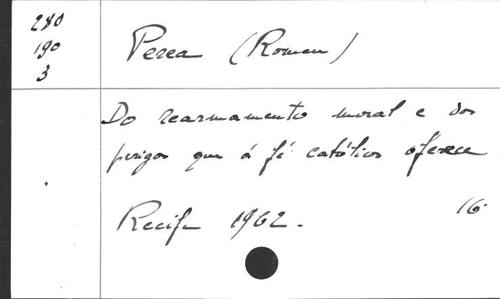 280
190
3
Perea (Romeu)
Do rearmamento moral e dos
perigos que á fé católica oferece.
Recife 1962.
16.